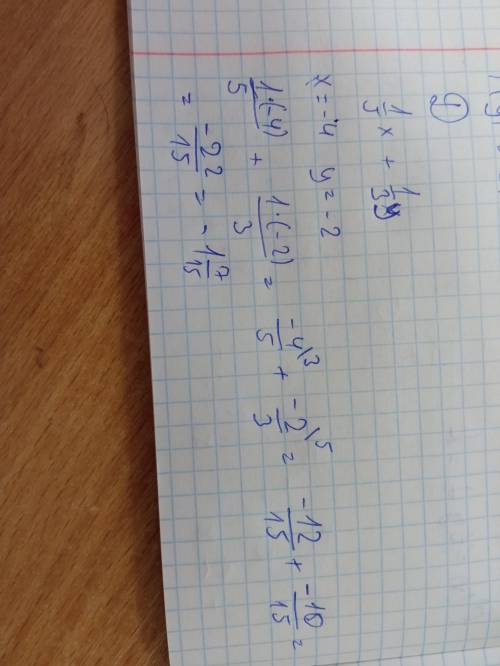 ②
1/5 x + 1/3 y
x = -4 y = -2
1·(-4)/5 + 1·(-2)/3 = -4/5 \3 + -2/3 \5 = -12/15 + -10/15 =
= -22/15 = -1 7/15